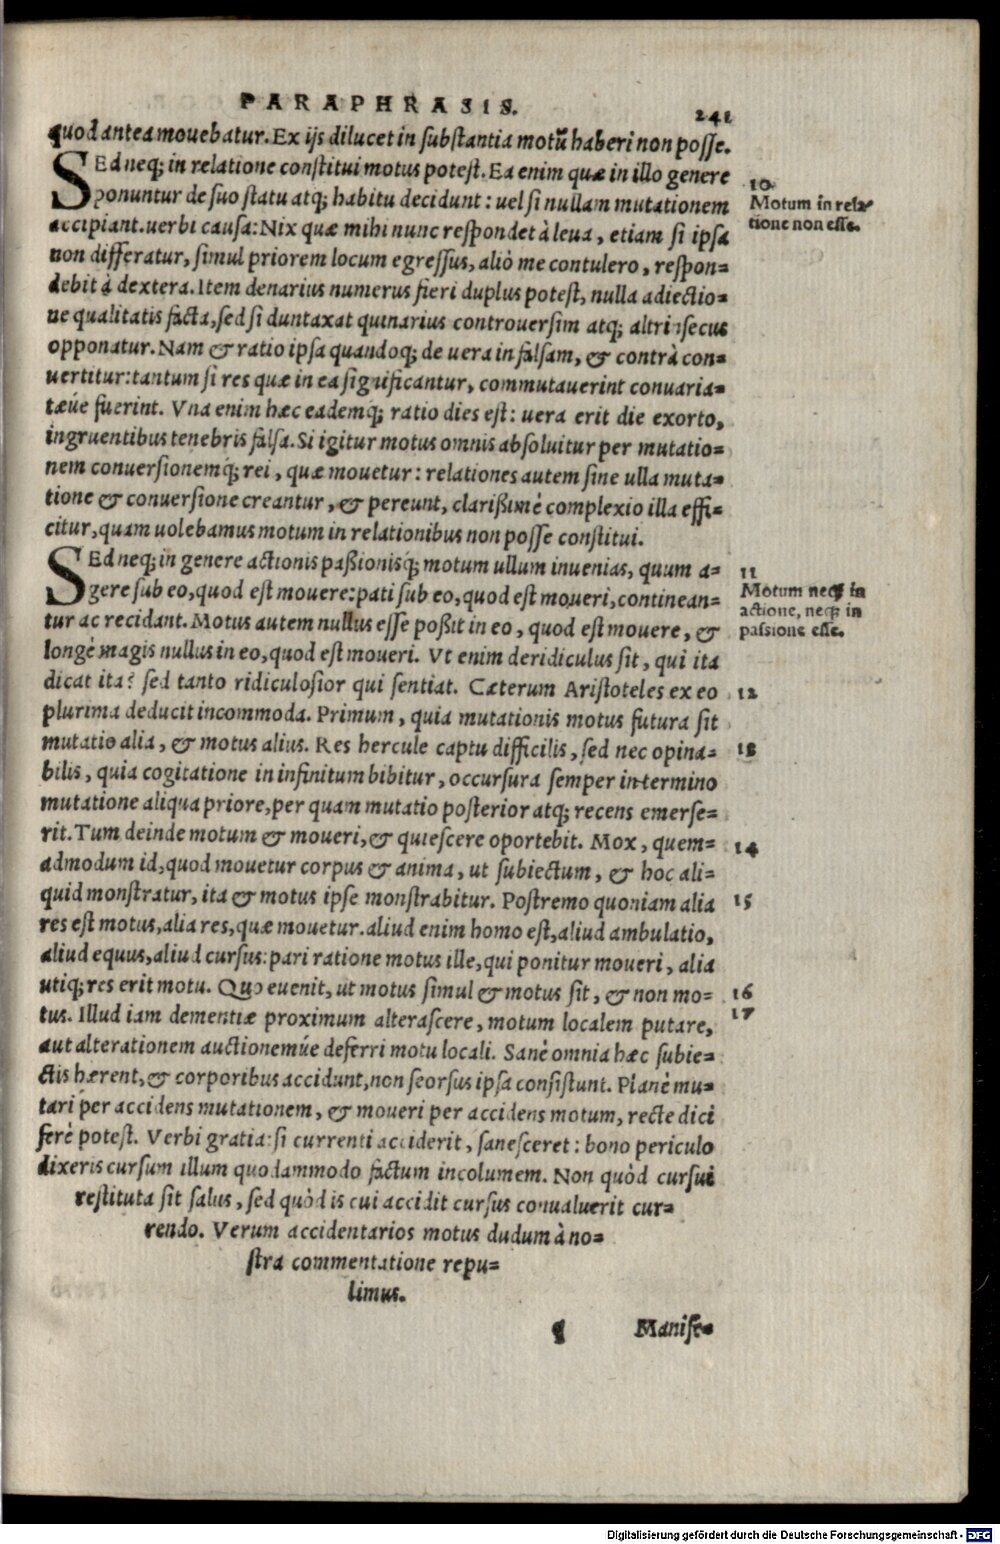 PARAPHRASIS. 241
quod antea mouebatur. Ex ijs dilucet in substantia motū haberi non posse.
SEd neq; in relatione constitui motus potest. Ea enim quæ in illo genere
ponuntur de suo statu atq; habitu decidunt: uel si nullam mutationem
accipiant. uerbi causa: Nix quæ mihi nunc respondet à leua, etiam si ipsa
non differatur, simul priorem locum egressus, aliò me contulero, respon=
debit à dextera. Item denarius numerus fieri duplus potest, nulla adiectio=
ne qualitatis facta, sed si duntaxat quinarius controuersim atq; altrinsecus
opponatur. Nam & ratio ipsa quandoq; de uera in falsam, & contrà con=
uertitur: tantum si res quæ in ea significantur, commutauerint conuaria=
tæúe fuerint. Vna enim hæc eademq́; ratio dies est: uera erit die exorto,
ingruentibus tenebris falsa. Si igitur motus omnis absoluitur per mutatio=
nem conuersionemq́; rei, quæ mouetur: relationes autem sine ulla muta=
tione & conuersione creantur, & pereunt, clarißimè complexio illa effi=
citur, quam uolebamus motum in relationibus non posse constitui.
10
Motum in rela=
tione non esse.
SEd neq; in genere actionis paßionisq́; motum ullum inuenias, quum a=
gere sub eo, quod est mouere: pati sub eo, quod est moueri, continean=
tur ac recidant. Motus autem nullus esse poßit in eo, quod est mouere, &
longè magis nullus in eo, quod est moueri. Vt enim deridiculus sit, qui ita
dicat ita? sed tanto ridiculosior qui sentiat. Cæterum Aristoteles ex eo
plurima deducit incommoda. Primum, quia mutationis motus futura sit
mutatio alia, & motus alius. Res hercule captu difficilis, sed nec opina=
bilis, quia cogitatione in infinitum bibitur, occursura semper in termino
mutatione aliqua priore, per quam mutatio posterior atq; recens emerse=
rit. Tum deinde motum & moueri, & quiescere oportebit. Mox, quem=
admodum id, quod mouetur corpus & anima, ut subiectum, & hoc ali=
quid monstratur, ita & motus ipse monstrabitur. Postremo quoniam alia
res est motus, alia res, quæ mouetur. aliud enim homo est, aliud ambulatio,
aliud equus, aliud cursus: pari ratione motus ille, qui ponitur moueri, alia
utiq; res erit motu. Quo euenit, ut motus simul & motus sit, & non mo=
tus. Illud iam dementiæ proximum alterascere, motum localem putare,
aut alterationem auctionemúe deferri motu locali. Sanè omnia hæc subie=
ctis hærent, & corporibus accidunt, non seorsus ipsa consistunt. Planè mu=
tari per accidens mutationem, & moueri per accidens motum, recte dici
ferè potest. Verbi gratia: si currenti acciderit, sanesceret: bono periculo
dixeris cursum illum quodammodo factum incolumem. Non quòd cursui
restituta sit salus, sed quòd is cui accidit cursus conualuerit cur=
rendo. Verum accidentarios motus dudum à no=
stra commentatione repu=
limus.
11
Motum neq; in
actione, neq; in
passione esse.
12
13
14
15
16
17
¶ Manife=
Digitalisierung gefördert durch die Deutsche Forschungsgemeinschaft - DFG